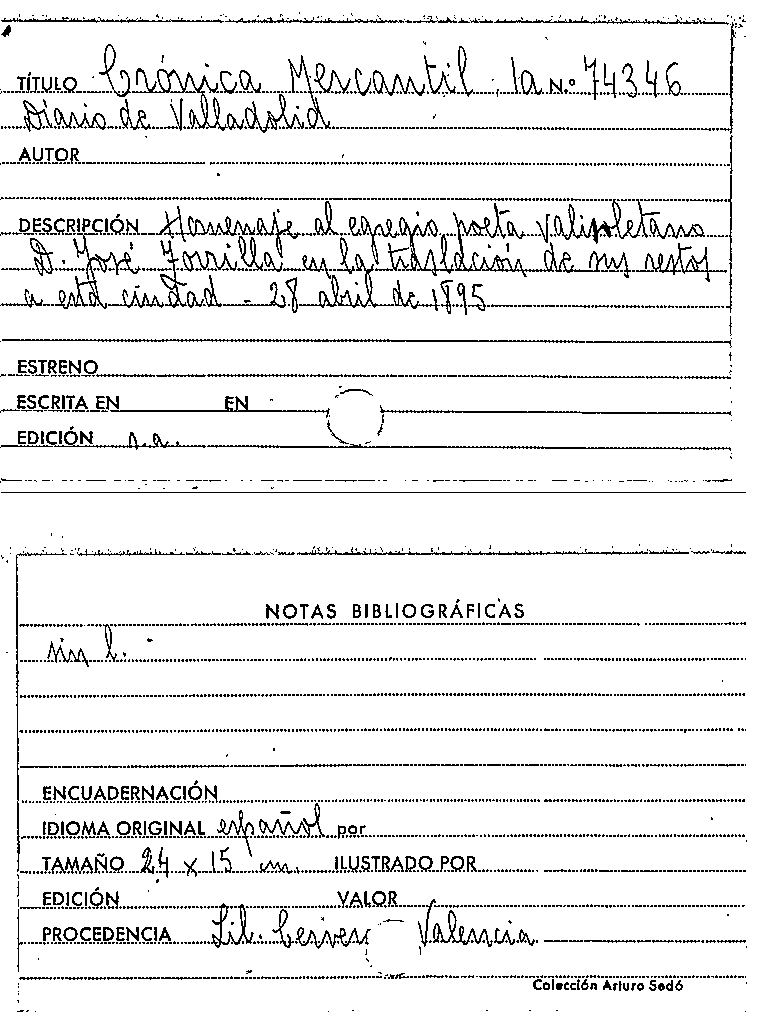 TÍTULO Crónica Mercantil, la N.º 74346
Diario de Valladolid
AUTOR
DESCRIPCIÓN Homenaje al egregio poeta valisoletano
D. José Zorrilla en la traslación de sus restos
a esta ciudad - 28 abril de 1895
ESTRENO
ESCRITA EN EN
EDICIÓN s.a.
NOTAS BIBLIOGRÁFICAS
sin l. -
ENCUADERNACIÓN
IDIOMA ORIGINAL español por
TAMAÑO 24 x 15 cm. ILUSTRADO POR
EDICIÓN VALOR
PROCEDENCIA Lib. Valencia
Colección Arturo Sedó